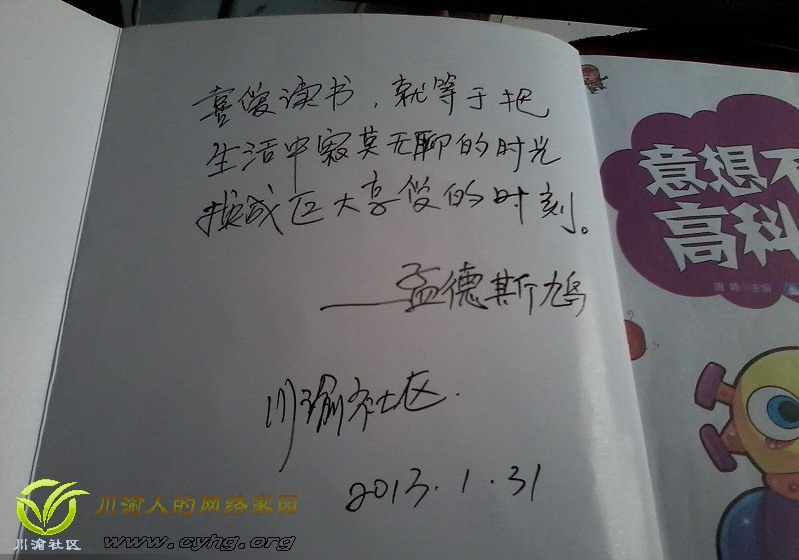 喜爱读书，就等于把
生活中寂莫无聊的时光
换成巨大享受的时刻。
——孟德斯鸠
川渝社区.
2013.1.31
意想不
高科
主编
川渝人的网络家园
川渝社区 www.cyhg.org